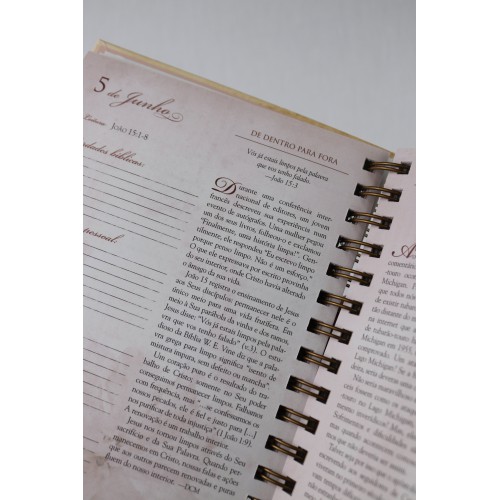 5 de Junho
Leitura: JOÃO 15:1-8
dades bíblicas:
pessoal:
DE DENTRO PARA FORA
Vós já estais limpos pela palavra
que vos tenho falado.
—João 15:3
Durante uma conferência inter-
nacional de editores, um jovem
francês descreveu sua experiência num
evento de autógrafos. Uma mulher pegou
um dos seus livros, folheou-o e exclamou
"Finalmente, uma história limpa!". Gen-
tilmente, ele respondeu "Eu escrevo limpo
porque penso limpo. Não é um esforço."
O que ele expressava por escrito provinha
do seu interior, onde Cristo havia alterado
o âmago da sua vida.
João 15 registra o ensinamento de Jesus
aos Seus discípulos: permanecer nele é o
único meio para uma vida frutífera. Em
meio à Sua parábola da vinha e dos ramos,
Jesus disse: "Vós já estais limpos pela pala-
vra que vos tenho falado" (v.3). O estu-
dioso da Bíblia W. E. Vine diz que a pala-
vra grega para limpo significa "isento de
mistura impura, sem defeito ou mancha".
Um coração puro é o trabalho de
Cristo; somente no Seu poder
conseguimos permanecer limpos. Falhamos
com frequência, mas "...se confessarmos os
nossos pecados, ele é fiel e justo para [...]
nos purificar de toda injustiça" (1 João 1:9).
A renovação é um trabalho interior.
Jesus nos tornou limpos através do Seu
sacrifício e da Sua Palavra. Quando per-
manecemos em Cristo, nossas falas e ações
que aos outros parecem renovadas e puras
fluem do nosso interior. —DCM
A
comentári
-touro (co
Michigan.
que todos nó
de existir tub
tão durante o
na internet
de tubarão
-touro no
Michigan
comprovado.
um Lago
Michigan! Se
Não seria
seriam
no Lago Mic